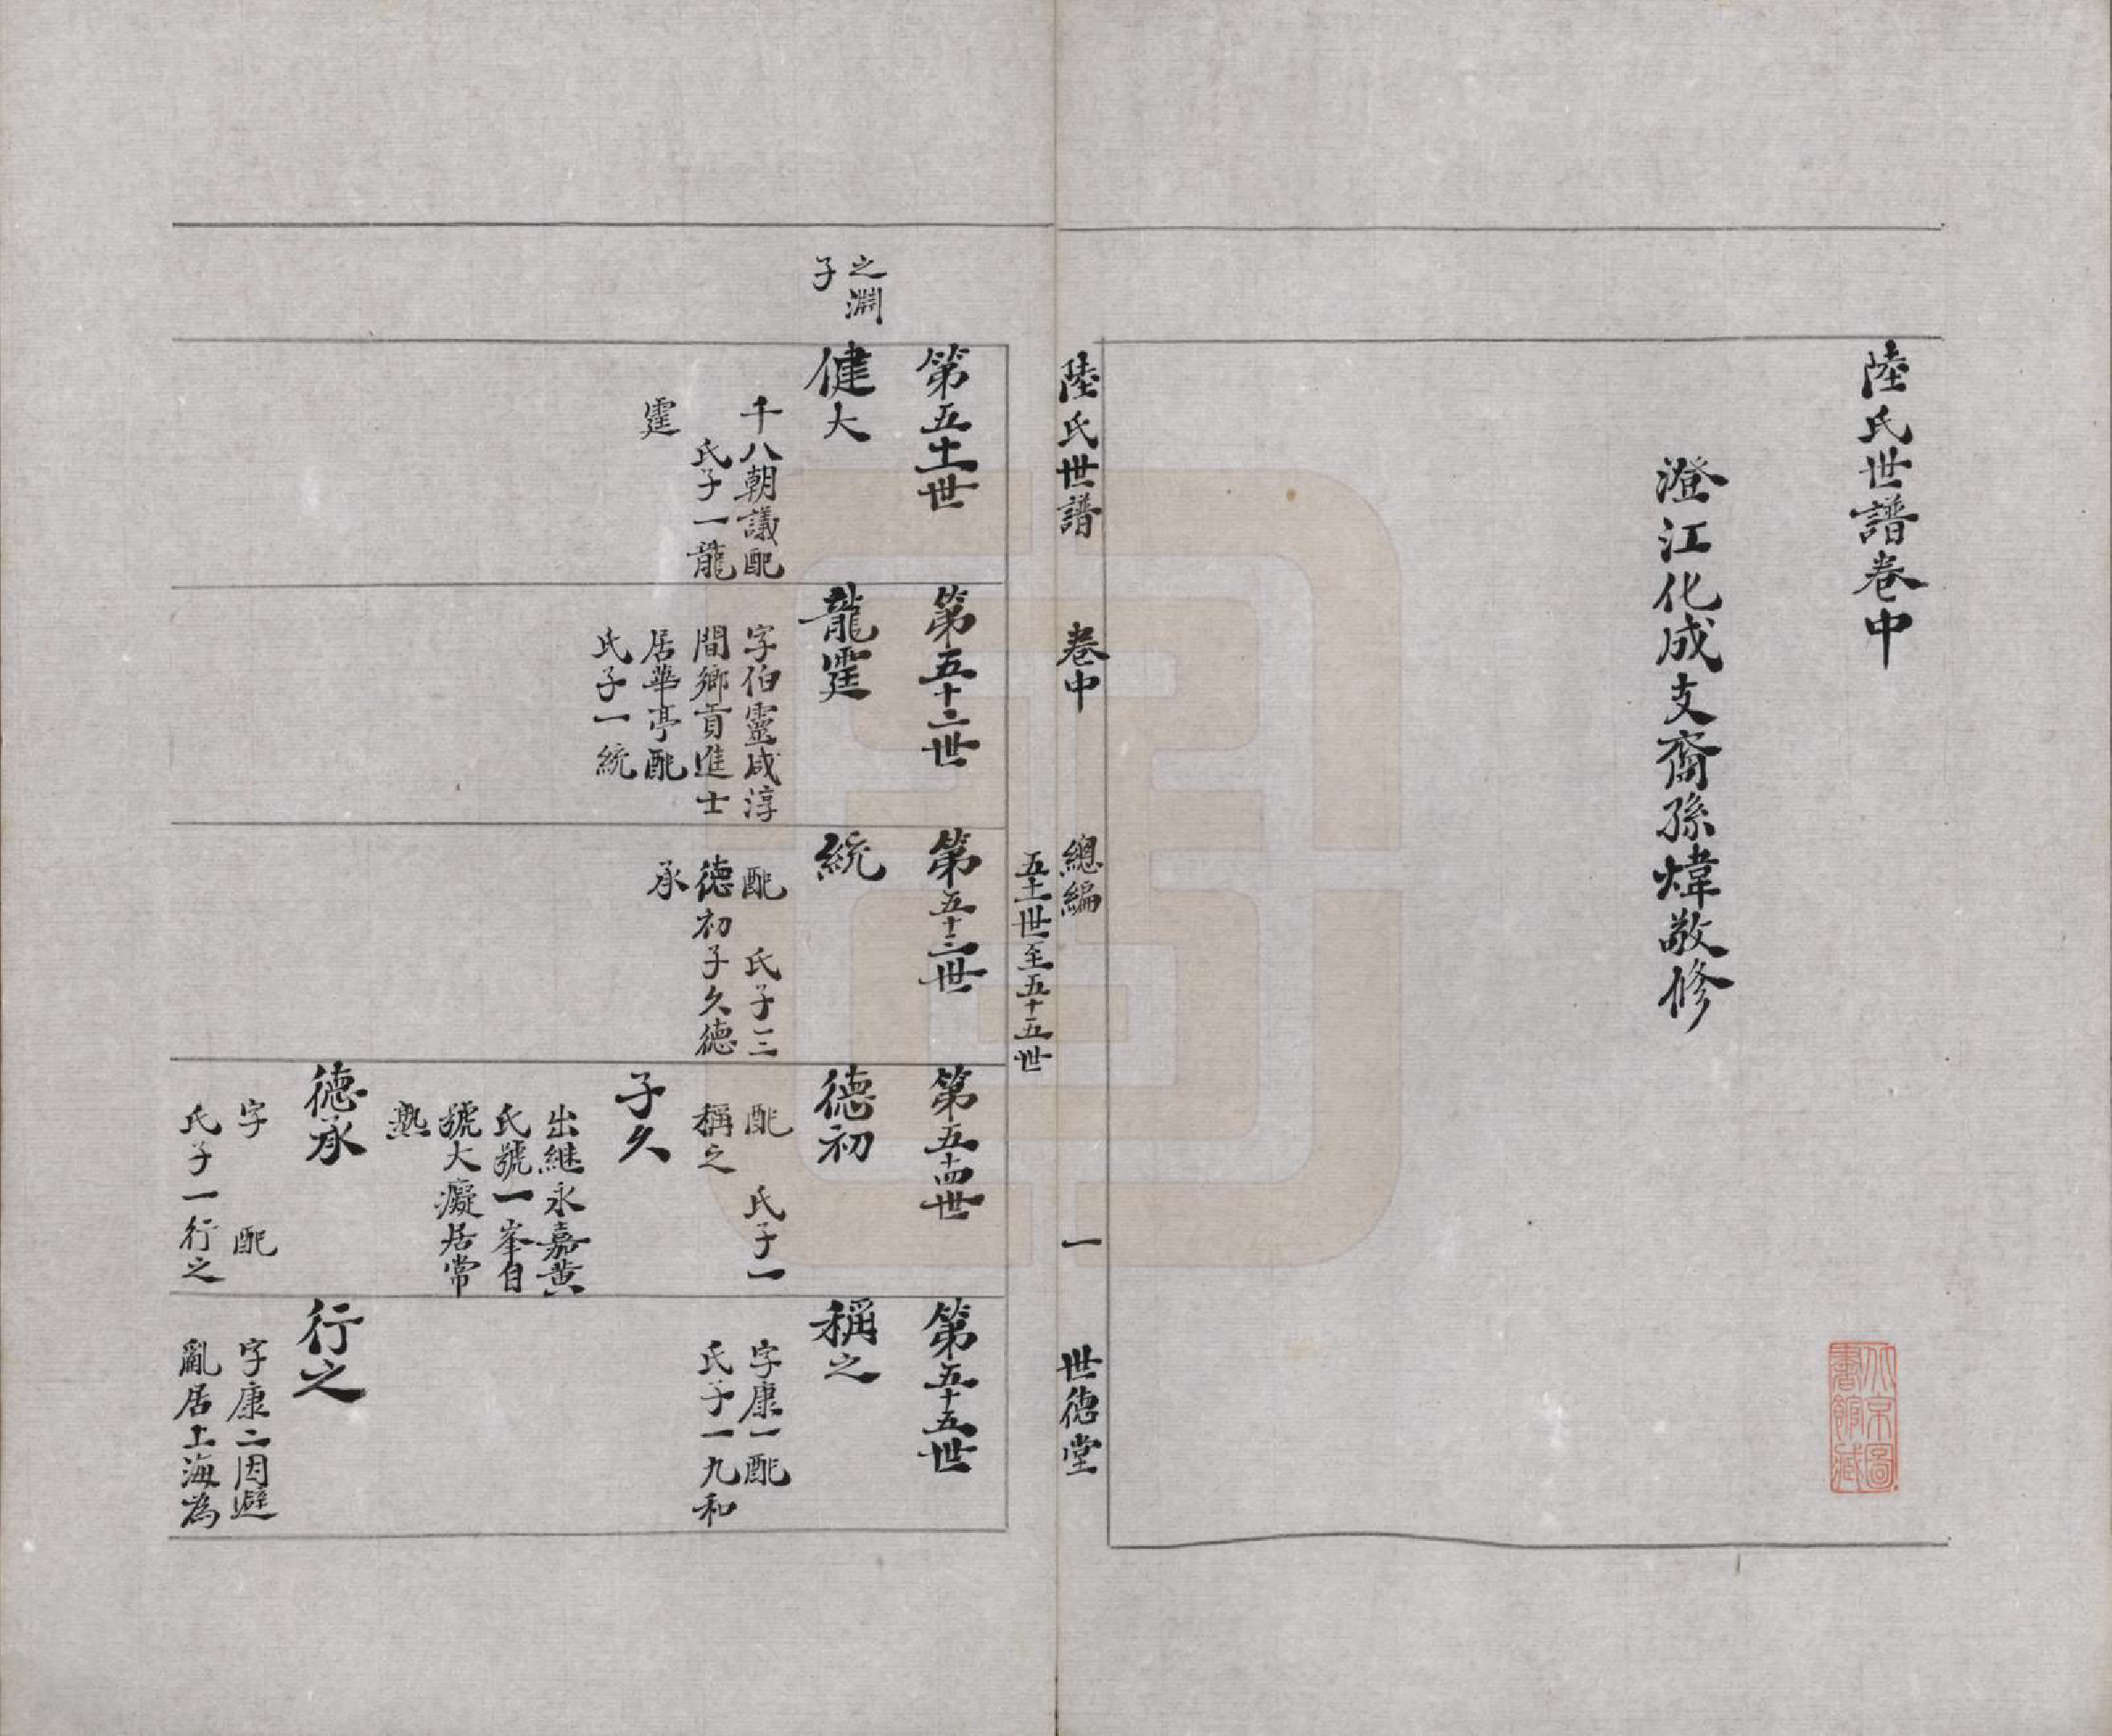 陸氏世譜卷中
澄江化成支裔孫煒敬修
北京圖
書館藏
陸氏世譜 卷中 總編 一 世德堂
五十一世至五十五世
之淵
子
第五十一世
健大
千八朝議配
氏子一龍
霆
第五十二世
龍霆
字伯靈咸淳
間鄉貢進士
居華亭配
氏子一統
第五十三世
統
配 氏子三
德初子久德
承
第五十四世
德初
配 氏子一
稱之
子久
出繼永嘉黄
氏號一峯自
號大癡居常
熟
德承
字 配
氏子一行之
第五十五世
稱之
字康一配
氏子一九和
行之
字康二因避
亂居上海為